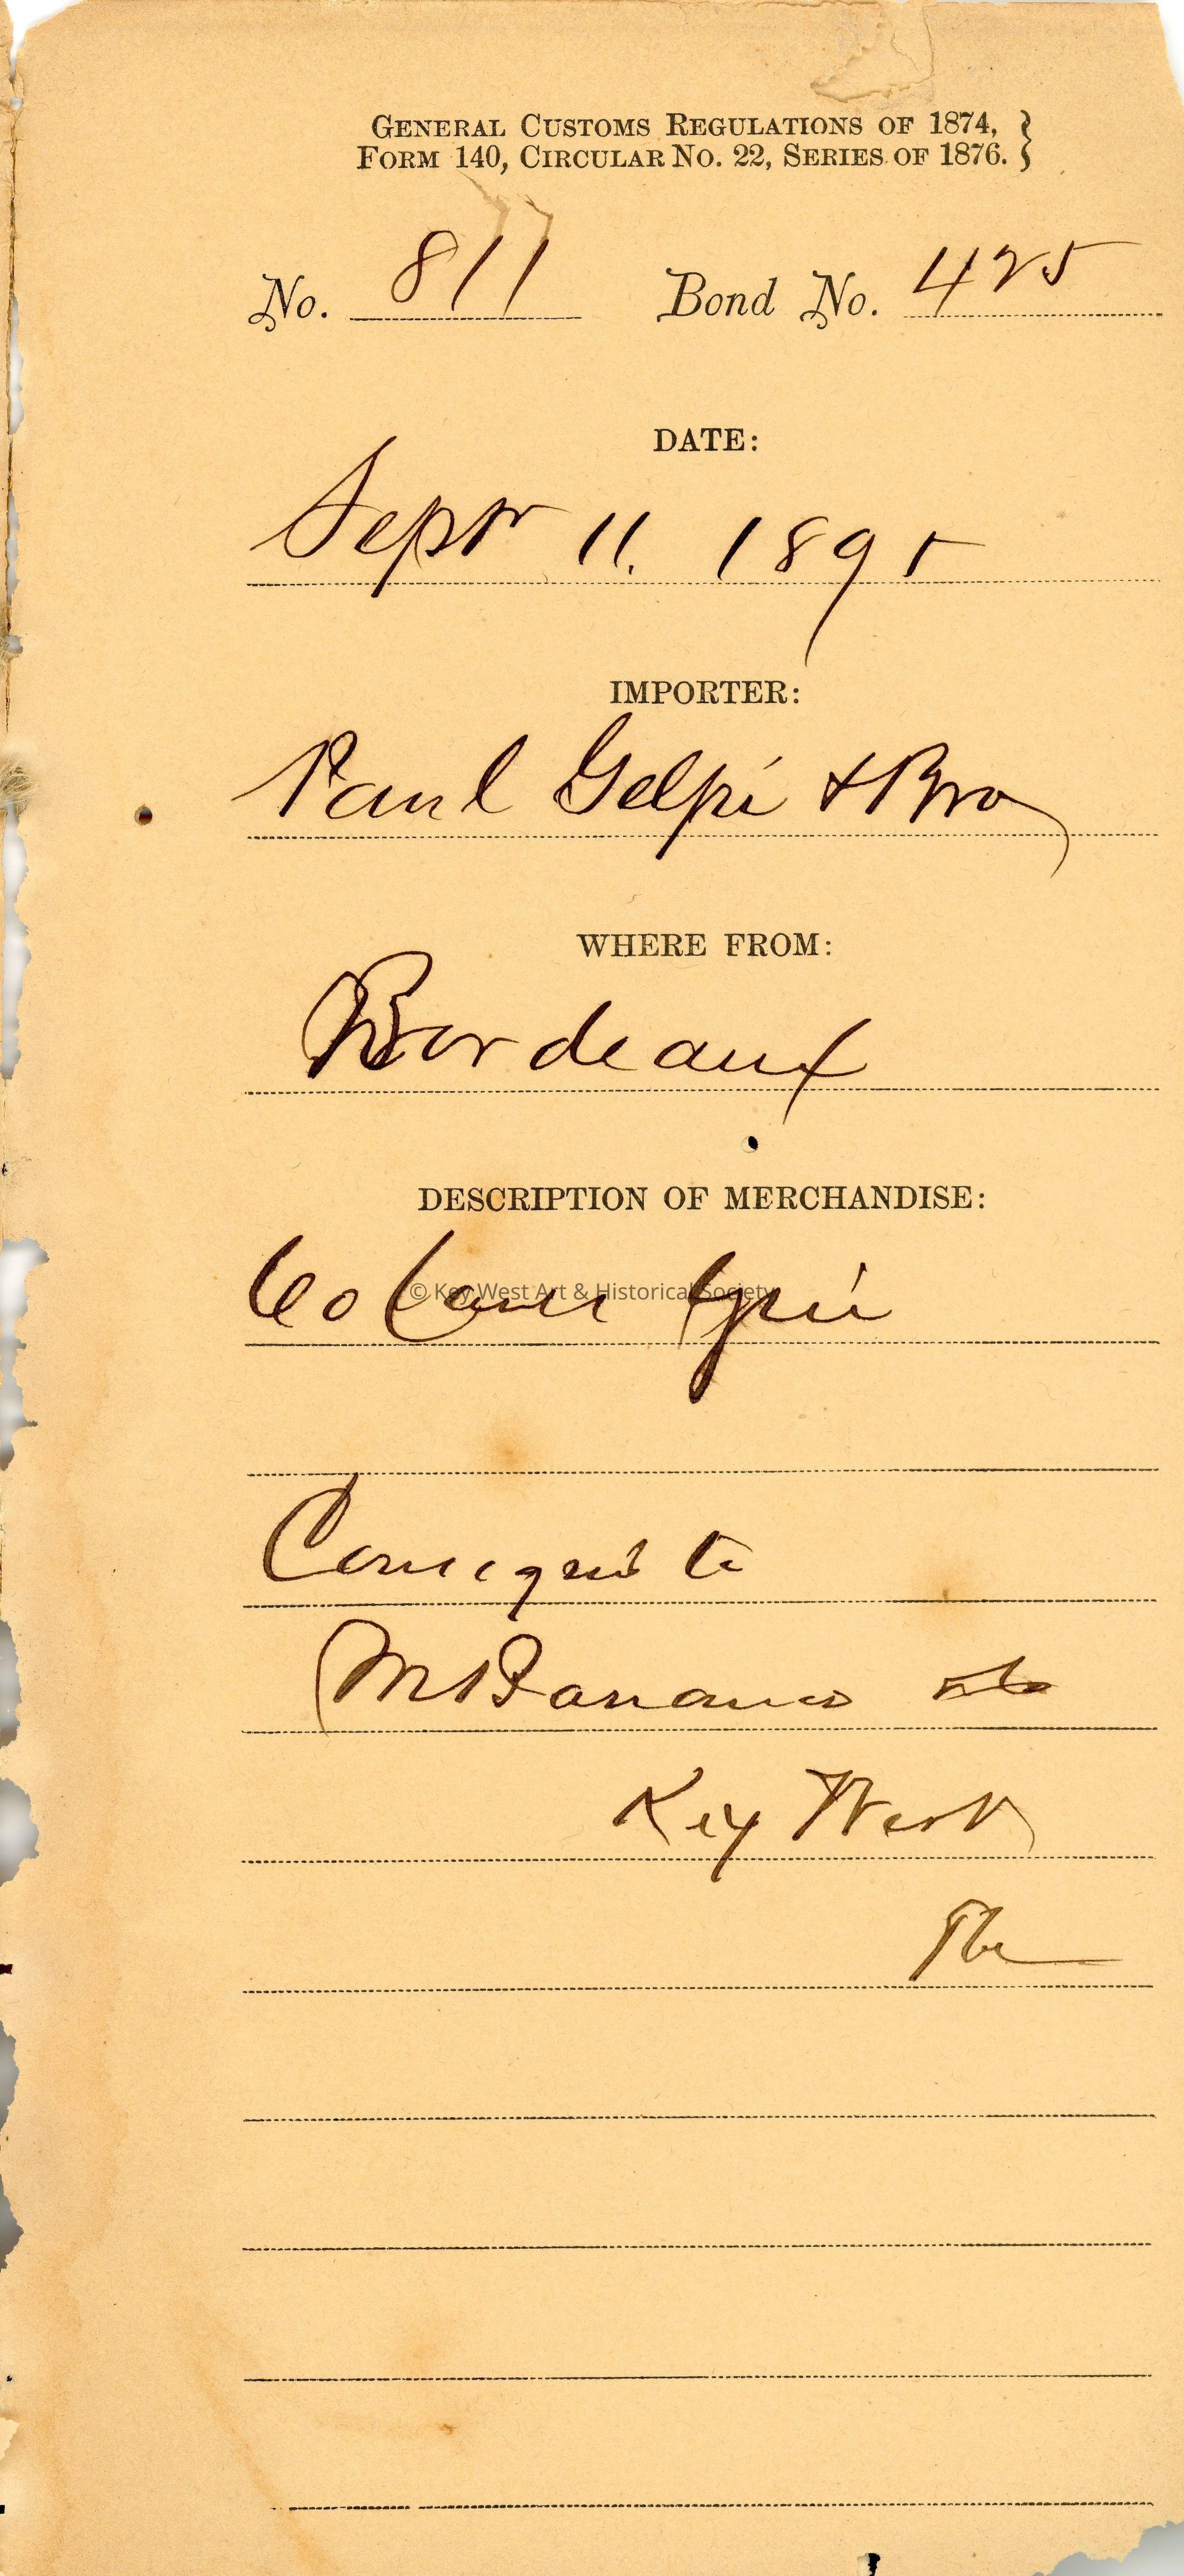 GENERAL CUSTOMS REGULATIONS OF 1874,
FORM 140, CIRCULAR No. 22, SERIES OF 1876.
No. 811 Bond No. 425
DATE:
Septr 11. 1895
IMPORTER:
Paul Gelpi & Bro
WHERE FROM:
Bordeaux
DESCRIPTION OF MERCHANDISE:
60 Cases
© Key West Art & Historical Society
to
Key West
Fla